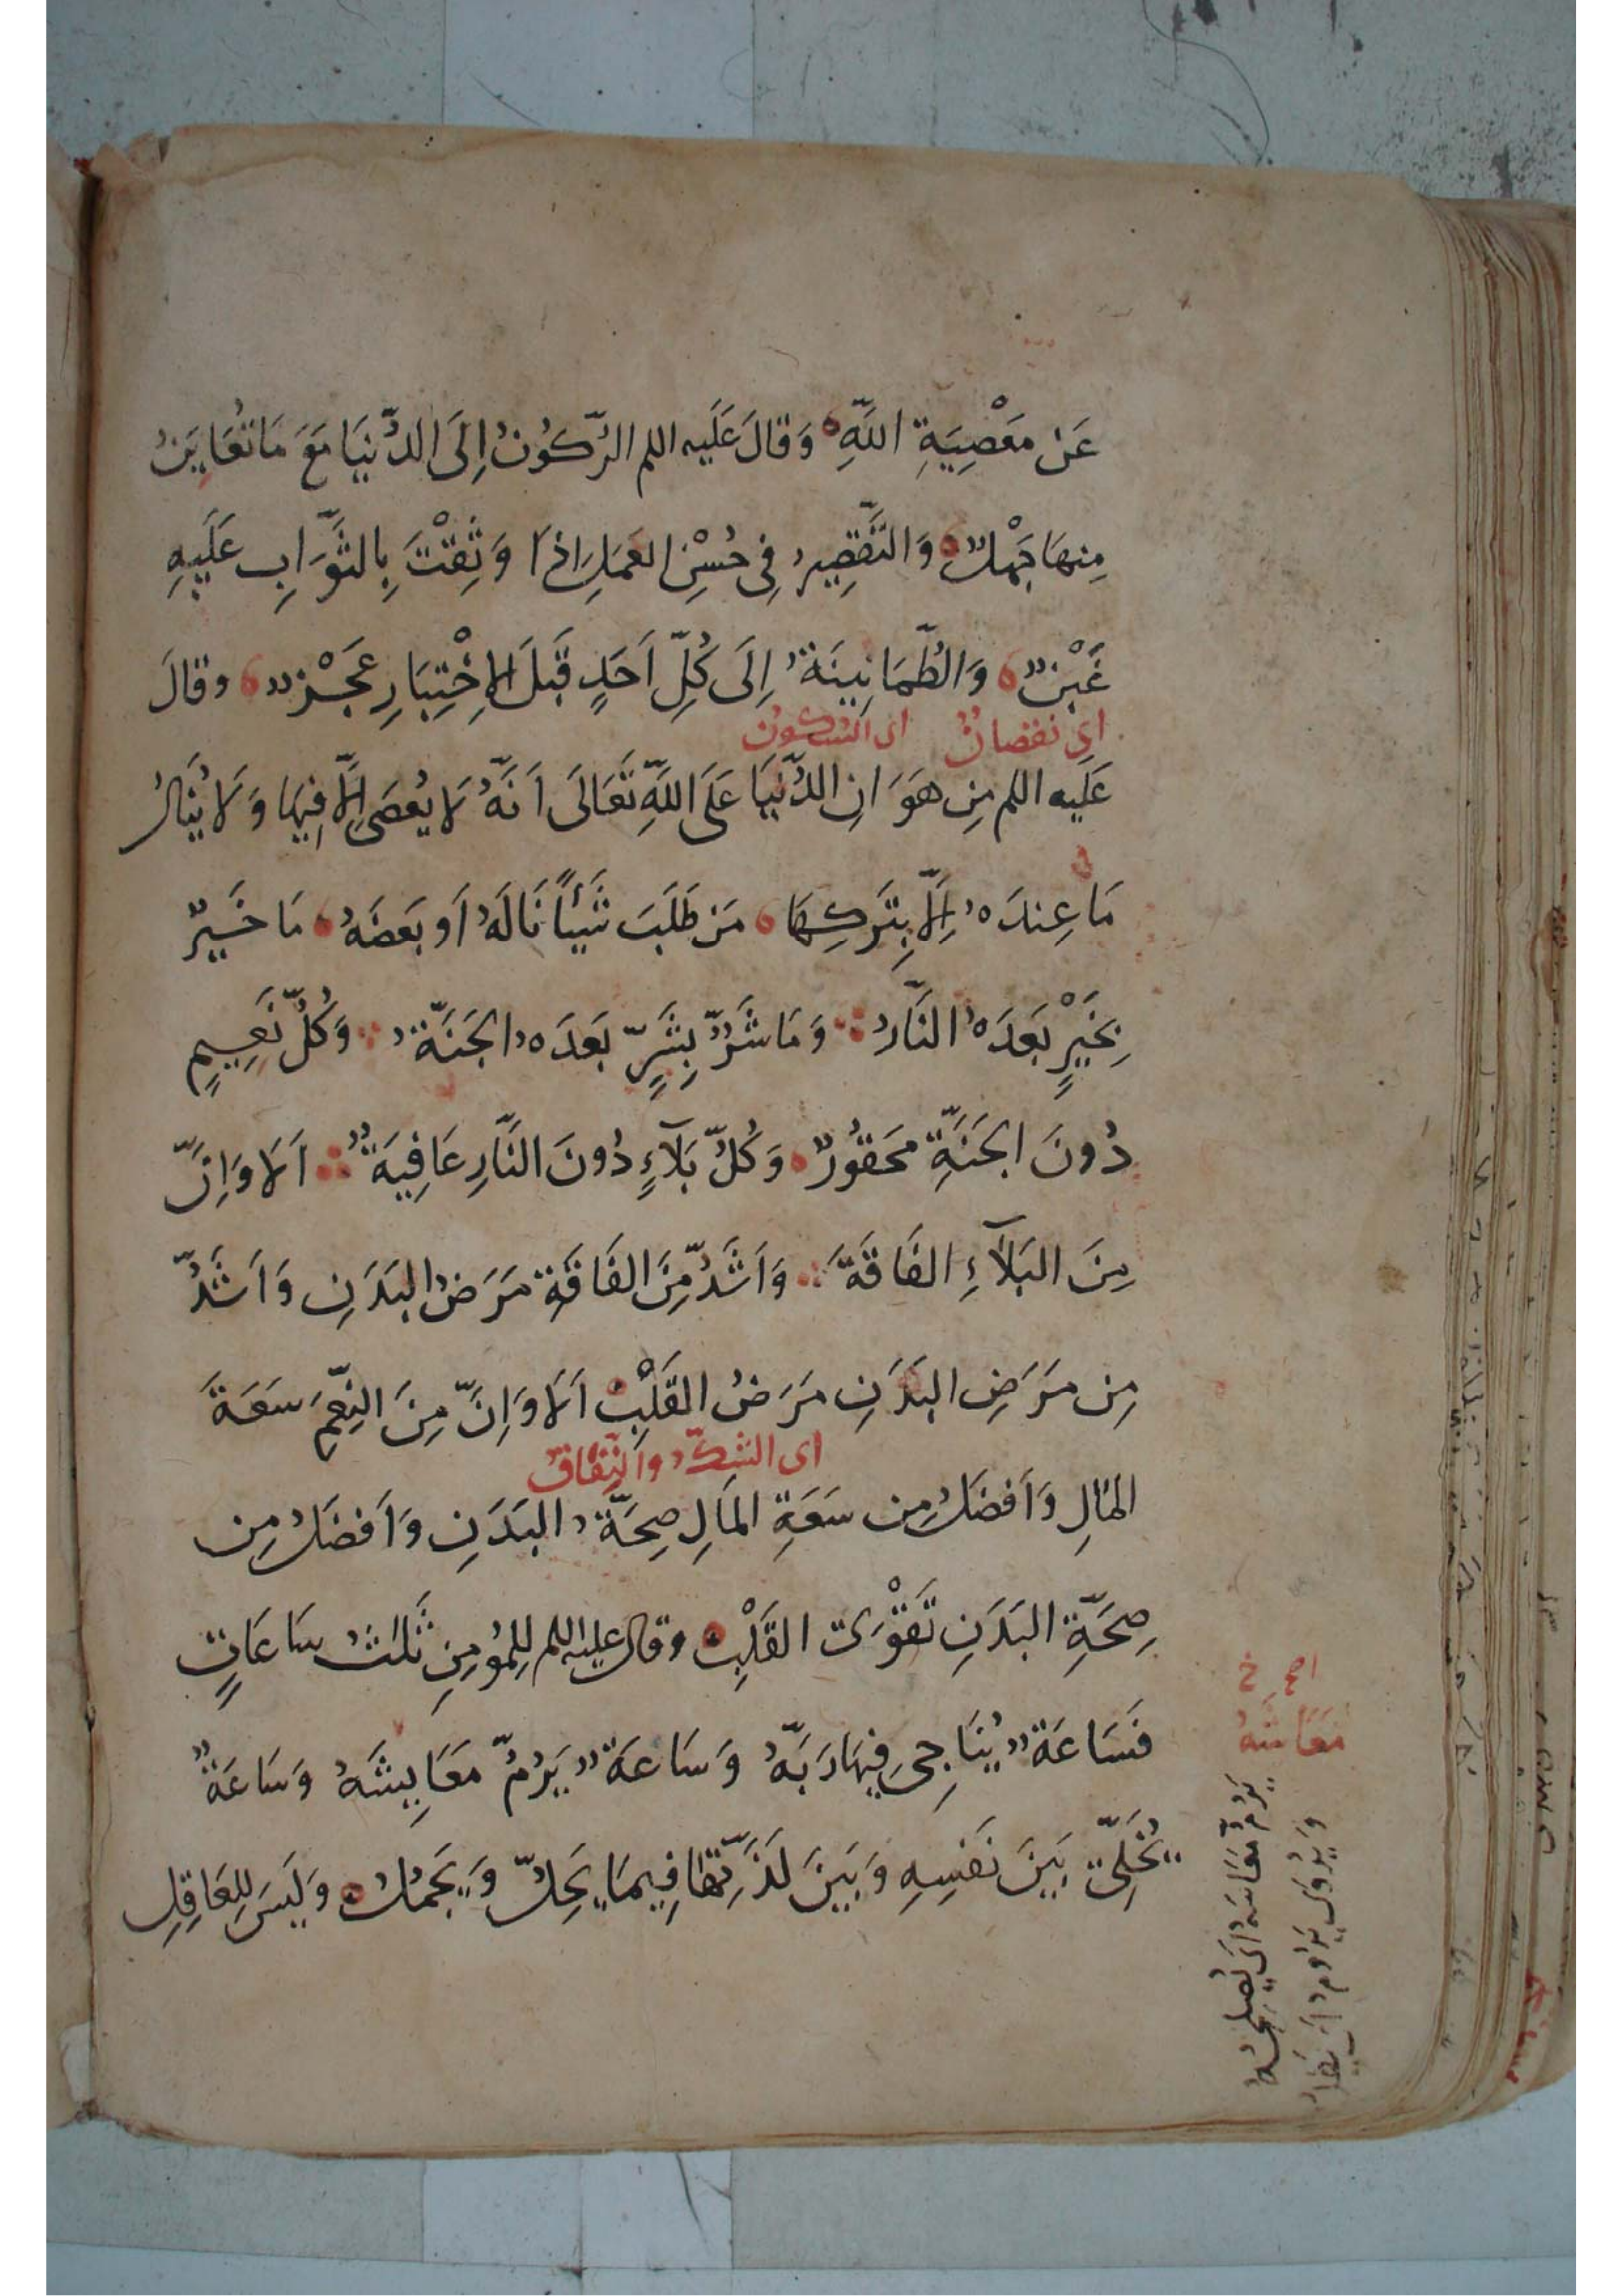 عَن مَعْصِيَةِ اللّهِ وَقَالَ عَلَيه اللم الرّكُونُ اِلَى الدُّنيَا مَعَ مَا تُعَايِنُ
مِنهَا جَهْلٌ وَالتَّقصِيرُ فِى حُسْنِ العَمَلِ اِذَا وَثِقْتَ بِالثَّوَابِ عَلَيهِ
غَبْنٌ وَالطُّمَانِينَةُ اِلَى كُلِّ اَحَدٍ قَبلَ الاِخْتِبَارِ عَجْزٌ وقالَ
اى نقصانٌ اى السّكونُ
عَلَيه اللم مِن هَوَانِ الدُّنيَا عَلَى اللّهِ تَعَالَى اَنَّهُ لَا يُعصَى اِلَّا فِيهَا وَلَا يُنَالُ
مَا عِندَهُ اِلَّا بِتَركِهَا مَن طَلَبَ شَيئاً نَالَهُ اَو بَعضَهُ مَا خَيرٌ
بِخَيْرٍ بَعدَهُ النَّارُ وَمَا شَرٌّ بِشَرٍّ بَعدَهُ الجَنَّةُ وَكُلُّ نَعِيمٍ
دُونَ الجَنَّةِ مَحقُورٌ وَكُلُّ بَلَآءٍ دُونَ النَّارِ عَافِيَةٌ اَلَا وَاِنَّ
مِنَ البَلَآءِ الفَاقَةَ وَاَشَدُّ مِنَ الفَاقَةِ مَرَضُ البَدَنِ وَاَشَدُّ
مِن مَرَضِ البَدَنِ مَرَضُ القَلْبِ اَلَا وَاِنَّ مِنَ النِّعَمِ سَعَةَ
اى الشكّ والنّفاق
المَالِ وَاَفضَلُ مِن سَعَةِ المَالِ صِحَّةُ البَدَنِ وَاَفضَلُ مِن
صِحَّةِ البَدَنِ تَقْوَى القَلْبِ وقال عليه اللم لِلمُؤمِنِ ثَلثُ سَاعَاتٍ
فَسَاعَةٌ يُنَاجِى فِيهَا رَبَّهُ وَسَاعَةٌ يَرُمُّ مَعَايِشَهُ وَسَاعَةٌ
يُخَلِّى بَينَ نَفسِهِ وَبَينَ لَذَّتِهَا فِيمَا يَحِلُّ وَيَجمُلُ وَلَيسَ لِلعَاقِلِ
مَعَاشَهُ
يَرُمُّ مَعَاشَهُ اَى يُصلِحُهُ
وَيُروَى